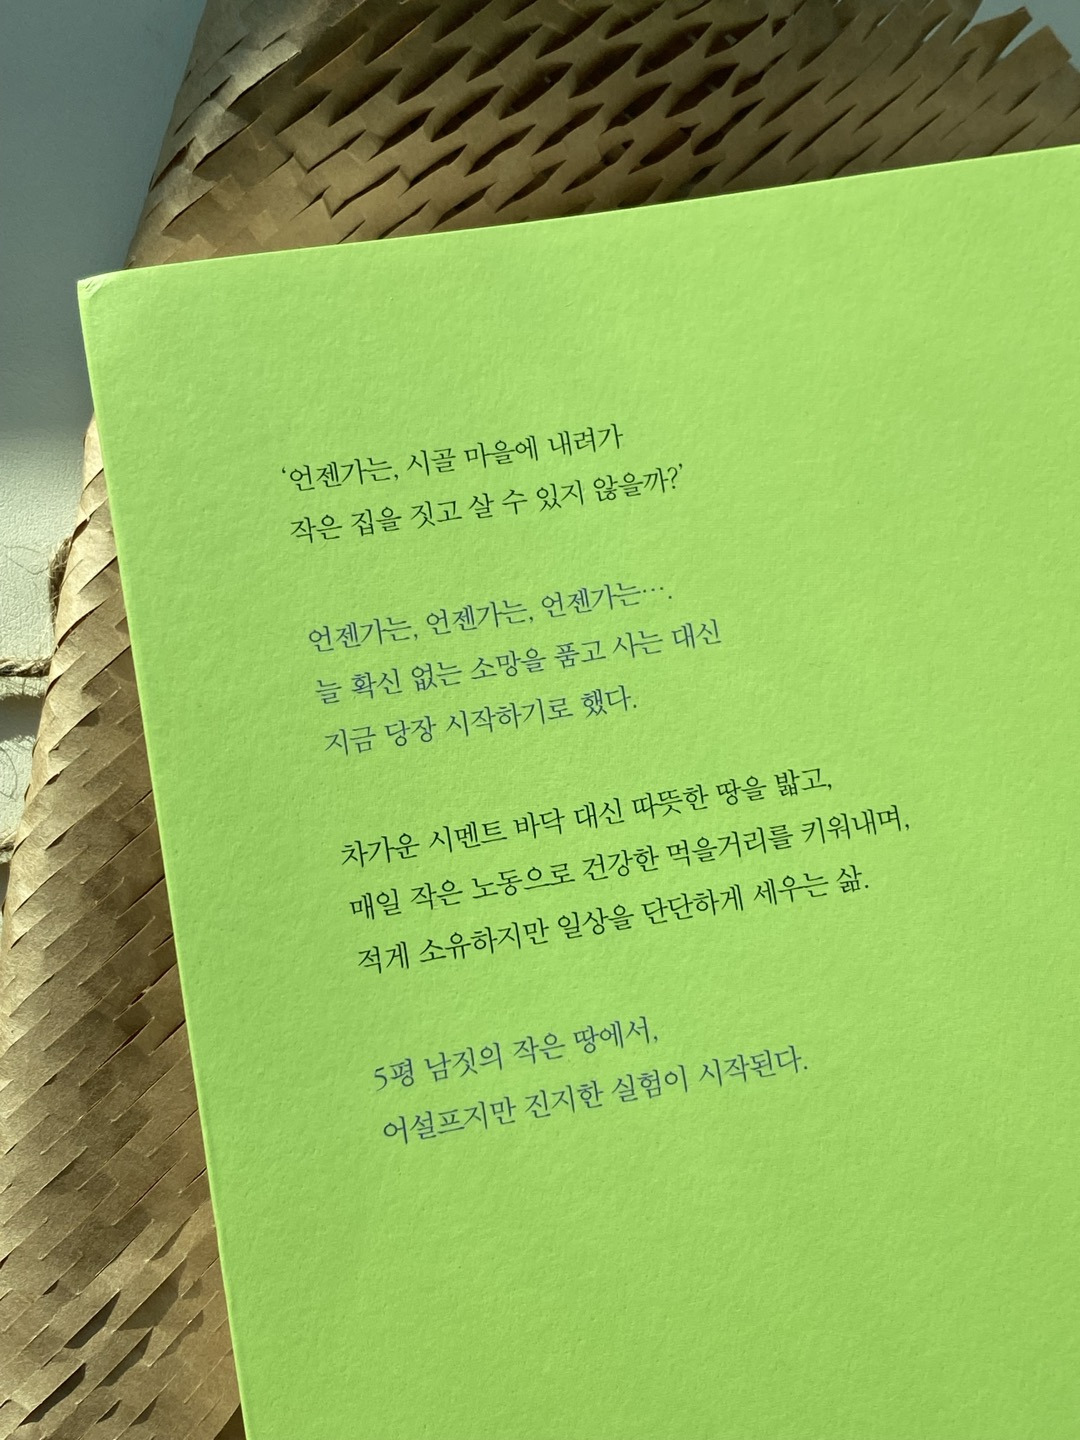 ‘언젠가는, 시골 마을에 내려가
작은 집을 짓고 살 수 있지 않을까?’
언젠가는, 언젠가는, 언젠가는….
늘 확신 없는 소망을 품고 사는 대신
지금 당장 시작하기로 했다.
차가운 시멘트 바닥 대신 따뜻한 땅을 밟고,
매일 작은 노동으로 건강한 먹을거리를 키워내며,
적게 소유하지만 일상을 단단하게 세우는 삶.
5평 남짓의 작은 땅에서,
어설프지만 진지한 실험이 시작된다.